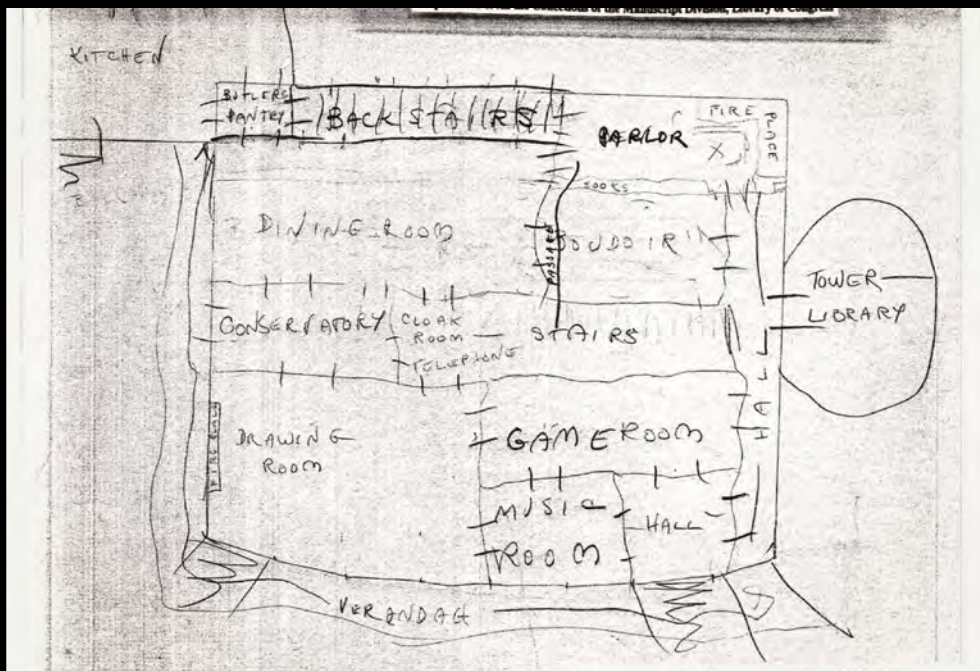 the Collections of the Manuscript Division, Library of Congress
KITCHEN
BUTLERS
PANTRY
BACK STAIRS
PARLOR
FIRE
PLACE
X
BOOKS
DINING ROOM
PASSAGE
BOUDOIR
TOWER
LIBRARY
CONSERVATORY
CLOAK
ROOM
TELEPHONE
STAIRS
HALL
FIRE PLACE
DRAWING
ROOM
GAME ROOM
MUSIC
ROOM
HALL
VERANDAH